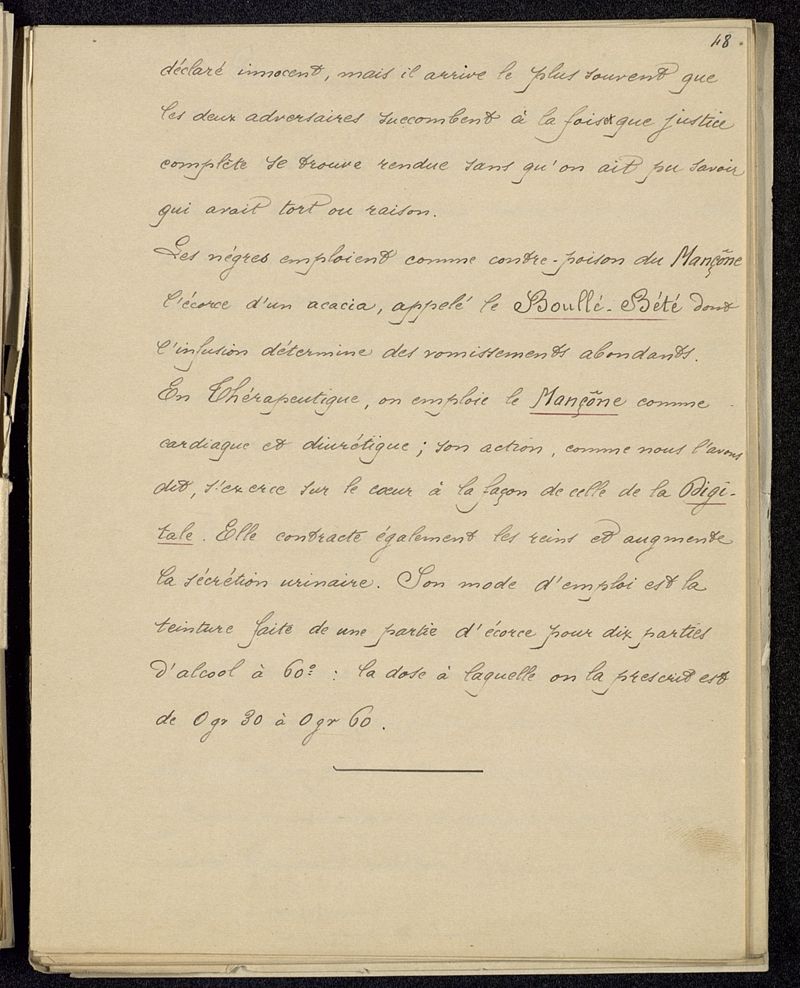 48.
déclaré innocent, mais il arrive le plus souvent que
les deux adversaires succombent à la fois et que justice
complète se trouve rendue sans qu'on ait pu savoir
qui avait tort ou raison.
Les négres emploient comme contre-poison du Mançône
l'écorce d'un acacia, appelé le Boullé-Bété dont
l'infusion détermine des vomissements abondants.
En Thérapeutique, on emploie le Mançône comme
cardiaque et diurétique ; son action, comme nous l'avons
dit, s'exerce sur le cœur à la façon de celle de la Digi-
tale. Elle contracte également les reins et augmente
la sécrétion urinaire. Son mode d'emploi est la
teinture faite de une partie d'écorce pour dix parties
d'alcool à 60° : la dose à laquelle on la prescrit est
de 0 gr 30 à 0 gr 60.